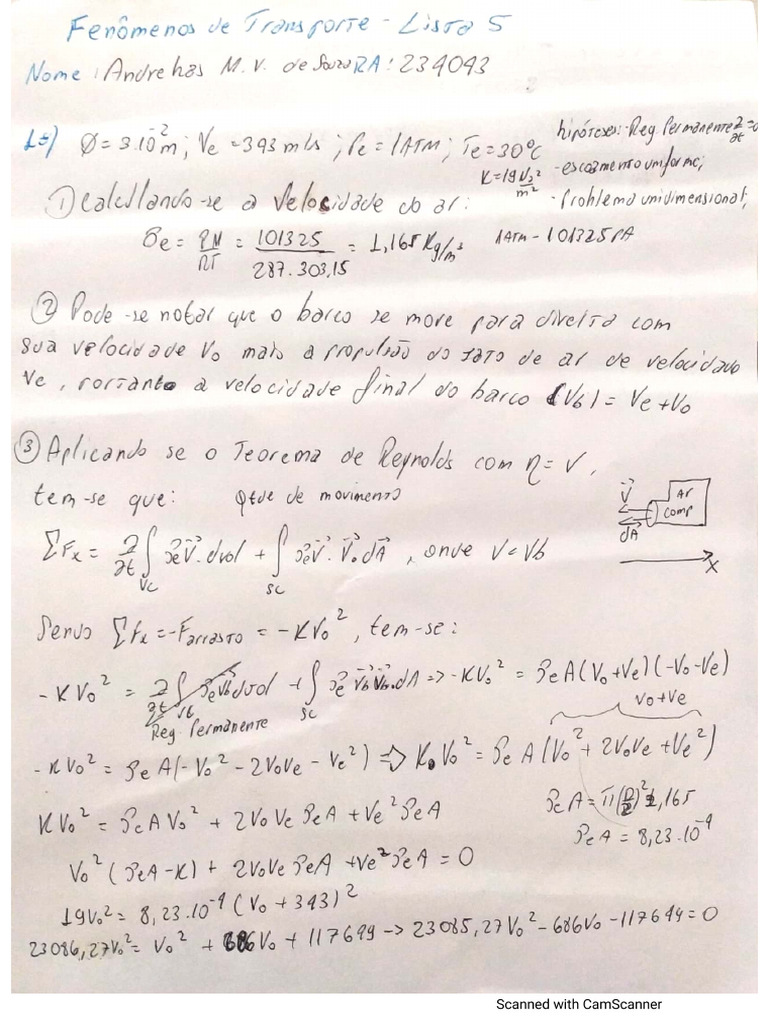 Fenômenos de Transporte - Lista 5
Nome: Andrehas M. V. de Souza RA: 234043
1º) Ø = 3.10⁻² m; Ve = 343 m/s; Pe = 1 ATM; Te = 30°C
hipóteses: - Reg. Permanente ∂/∂t = 0
K = 19 N s²/m² - escoamento uniforme;
- Problema unidimensional;
① Calculando-se a velocidade do ar:
ρe = PM/RT = 101325/287.303,15 = 1,165 Kg/m³ 1 ATM - 101325 PA
② Pode-se notar que o barco se move para direita com
sua velocidade V₀ mais a propulsão do jato de ar de velocidade
Ve, portanto a velocidade final do barco (Vb) = Ve + V₀
③ Aplicando se o Teorema de Reynolds com η = V,
tem-se que: Qtde de movimento
V⃗ Ar
comp
dA⃗
x
ΣFx = ∂/∂t ∫VC ρe V⃗. dvol + ∫SC ρe V⃗. V⃗. dA⃗, onde V = Vb
Sendo ΣFx = -Farrasto = -KV₀², tem-se:
-KV₀² = ∂/∂t ∫VC ρe Vb dvol + ∫SC ρe Vb Vb. dA => -KV₀² = ρe A(V₀+Ve)(-V₀-Ve)
Reg. Permanente
V₀+Ve
-KV₀² = ρe A(-V₀² - 2V₀Ve - Ve²) => K. V₀² = ρe A(V₀² + 2V₀Ve + Ve²)
KV₀² = ρe A V₀² + 2V₀Ve ρe A + Ve² ρe A
ρe A = π(D/2)² 1,165
ρe A = 8,23.10⁻⁴
V₀²(ρe A - K) + 2V₀Ve ρe A + Ve² ρe A = 0
19V₀² = 8,23.10⁻⁴ (V₀ + 343)²
23086,27V₀² = V₀² + 686V₀ + 117649 -> 23085,27V₀² - 686V₀ - 117649 = 0
Scanned with CamScanner